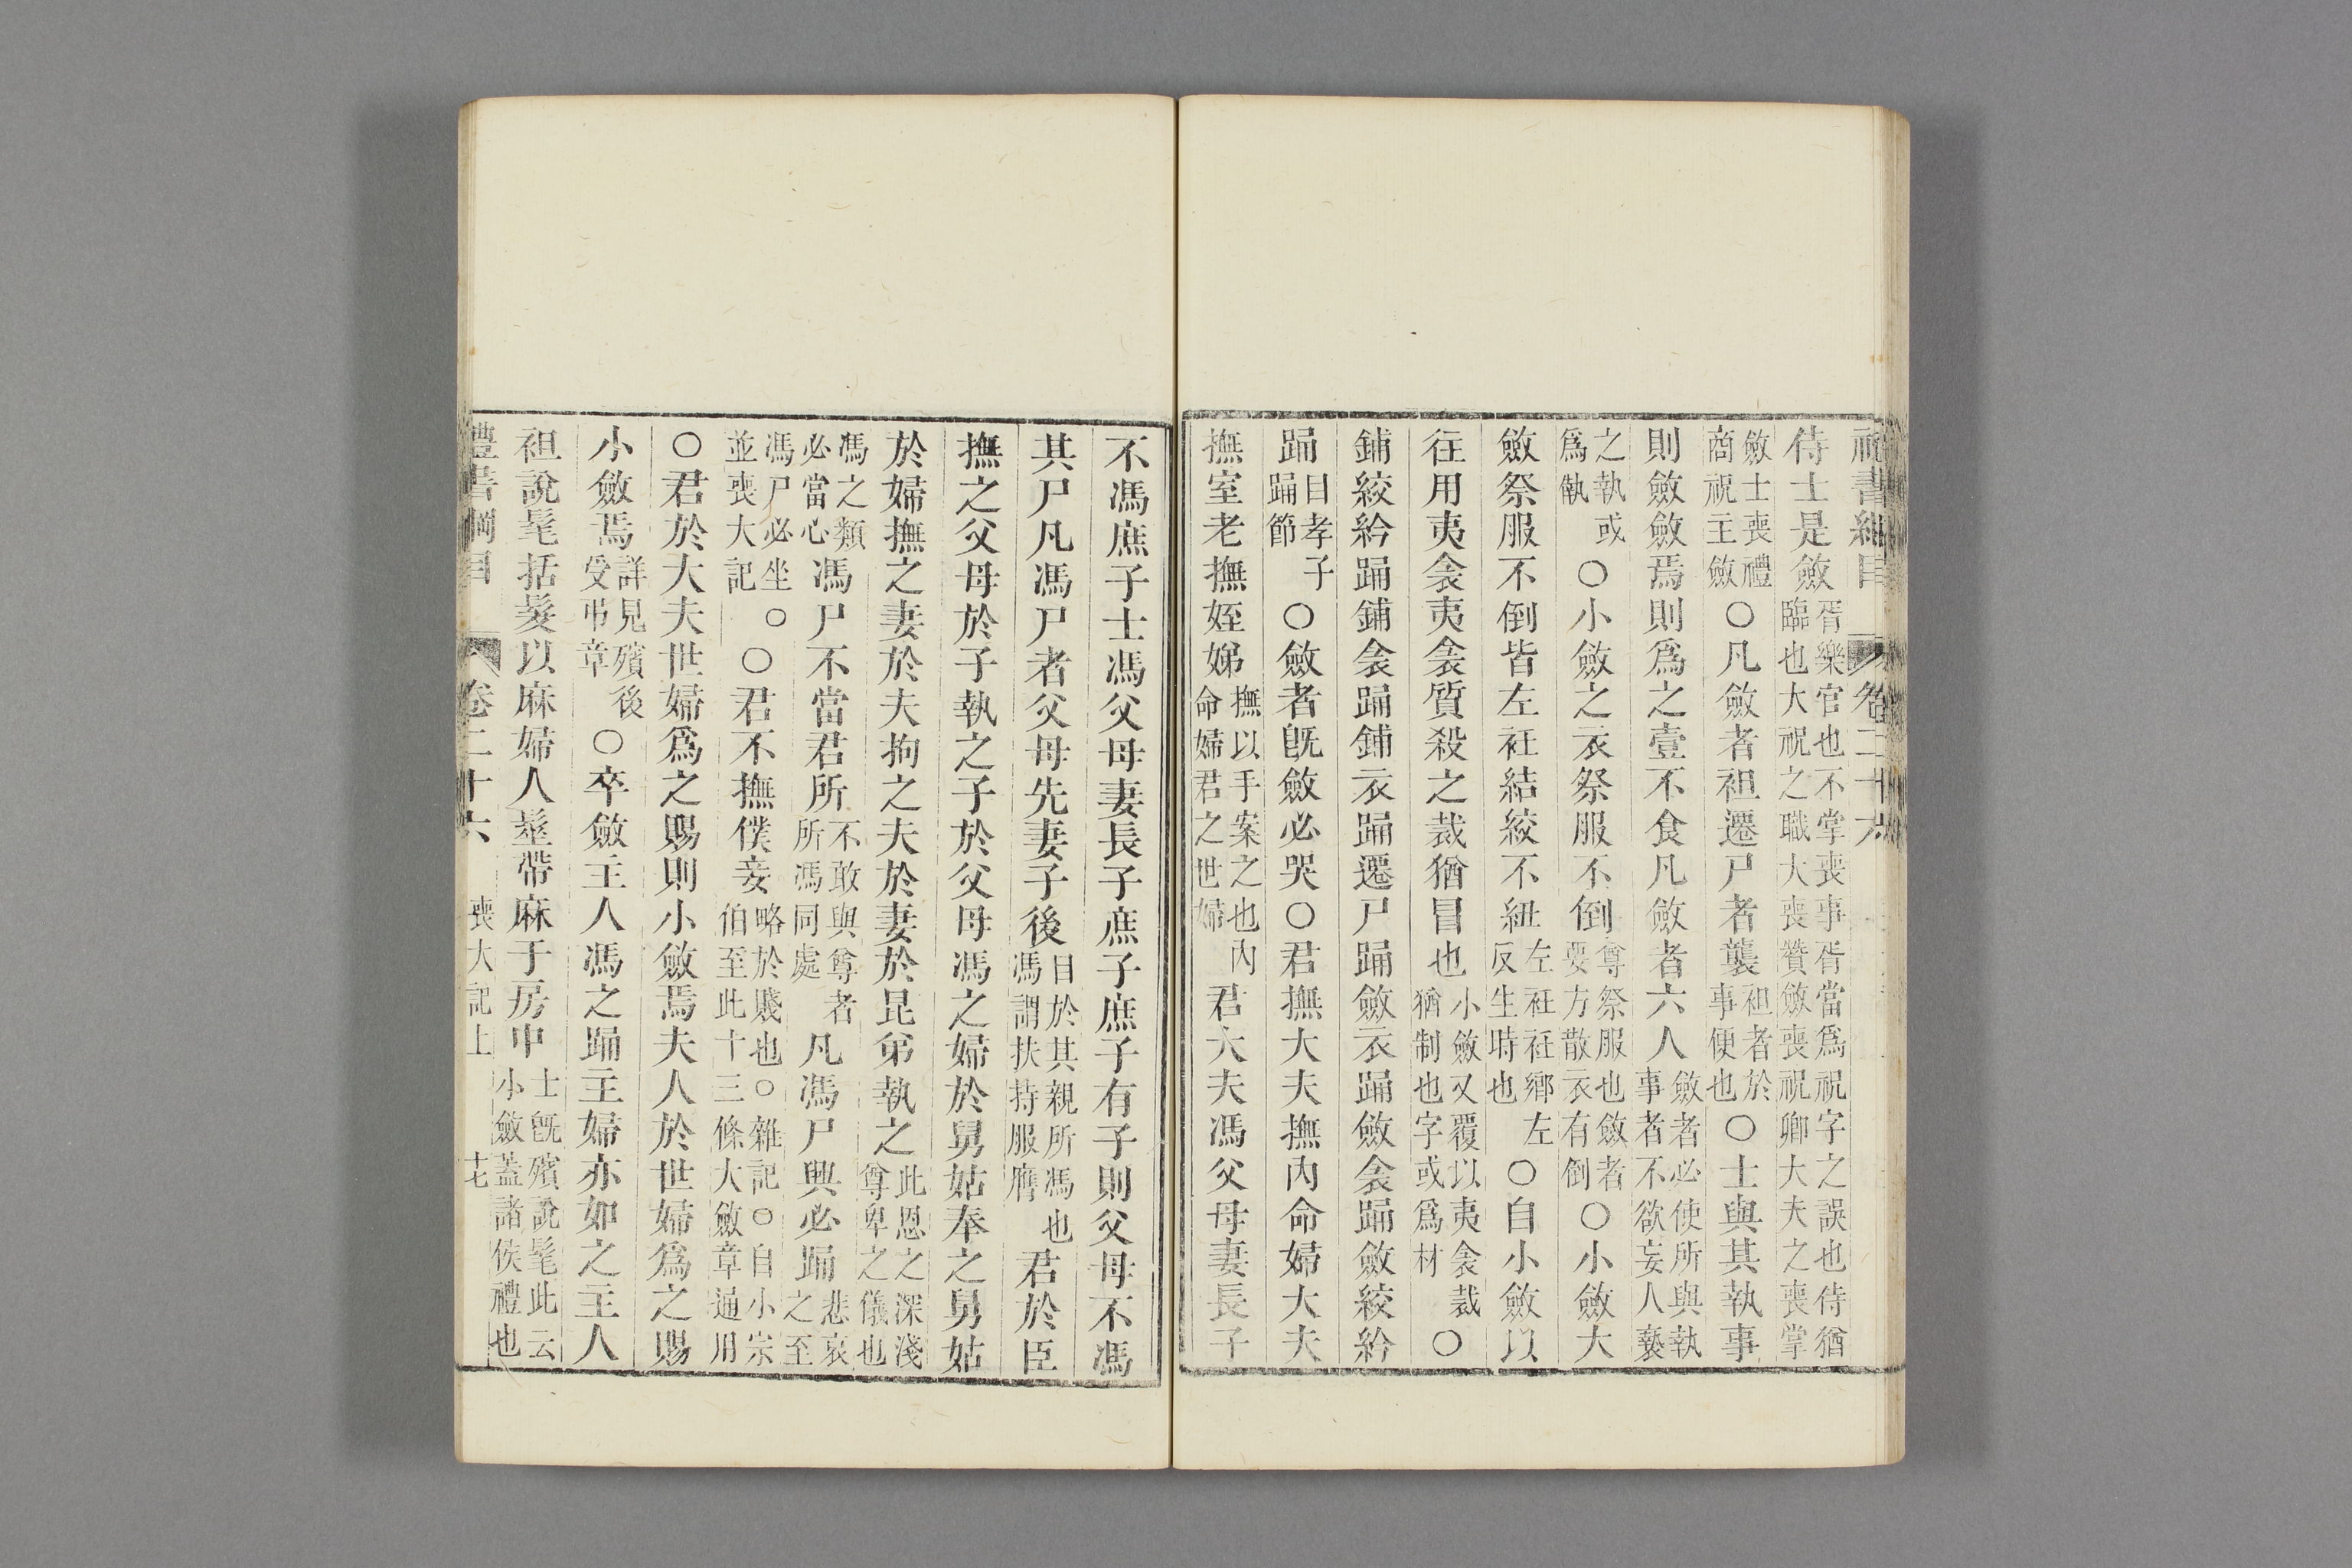 禮書綱目 卷二十六
侍士是斂胥樂官也不掌喪事胥當爲祝字之誤也侍猶臨也大祝之職大喪贊斂喪祝卿大夫之喪掌
斂士喪禮商祝主斂○凡斂者袒遷尸者襲袒者於事便也○士與其執事
則斂斂焉則爲之壹不食凡斂者六人斂者必使所與執事者不欲妄人褻
之執或爲㙯○小斂之衣祭服不倒尊祭服也斂者要方散衣有倒○小斂大
斂祭服不倒皆左衽結絞不紐左衽衽鄉左反生時也○自小斂以
往用夷衾夷衾質殺之裁猶冒也小斂又覆以夷衾裁猶制也字或爲材○
鋪絞紟踊鋪衾踊鋪衣踊遷尸踊斂衣踊斂衾踊斂絞紟
踊目孝子踊節○斂者旣斂必哭○君撫大夫撫內命婦大夫
撫室老撫姪娣撫以手案之也內命婦君之世婦君大夫馮父母妻長子
不馮庶子士馮父母妻長子庶子庶子有子則父母不馮
其尸凡馮尸者父母先妻子後目於其親所馮也馮謂扶持服膺君於臣
撫之父母於子執之子於父母馮之婦於舅姑奉之舅姑
於婦撫之妻於夫拘之夫於妻於昆弟執之此恩之深淺尊卑之儀也
馮之類必當心馮尸不當君所不敢與尊者所馮同處凡馮尸興必踊悲哀之至
馮尸必坐並喪大記○○君不撫僕妾略於賤也○雜記○自小宗伯至此十三條大斂章通用
○君於大夫世婦爲之賜則小斂焉夫人於世婦爲之賜
小斂焉詳見殯後受弔章○卒斂主人馮之踊主婦亦如之主人
袒說髦括髮以麻婦人髽帶麻于房中士旣殯說髦此云小斂蓋諸侯禮也
禮書綱目 卷二十六 喪大記上 十七